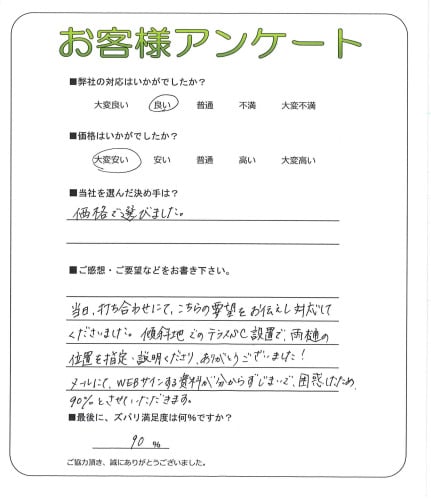 お客様アンケート
■弊社の対応はいかがでしたか？
大変良い 良い 普通 不満 大変不満
■価格はいかがでしたか？
大変安い 安い 普通 高い 大変高い
■当社を選んだ決め手は？
価格で選びました。
■ご感想・ご要望などをお書き下さい。
当日、打ち合わせにて、こちらの要望をお伝えし対応して
くださいました。傾斜地でのテラスSC設置で、雨樋の
位置を指定・説明くださり、ありがとうございました！
メールにて、WEBサインする資料が分からずじまいで、困惑したため、
90%とさせていただきます。
■最後に、ズバリ満足度は何%ですか？
90 %
ご協力頂き、誠にありがとうございました。